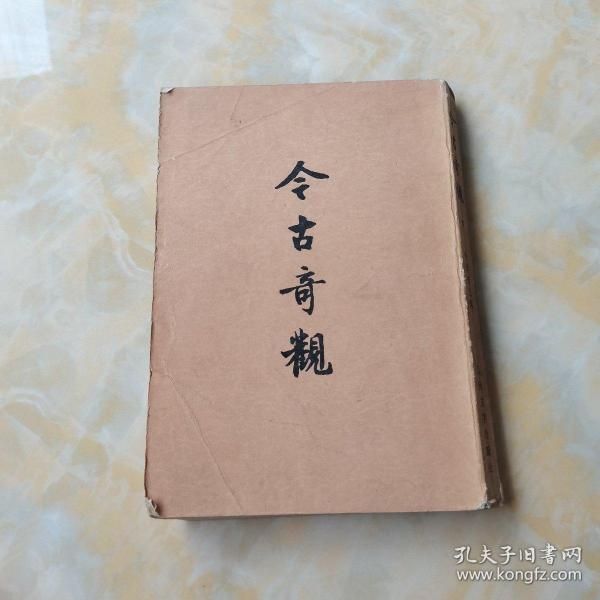 今古奇觀
孔夫子旧书网
www.kongfz.com